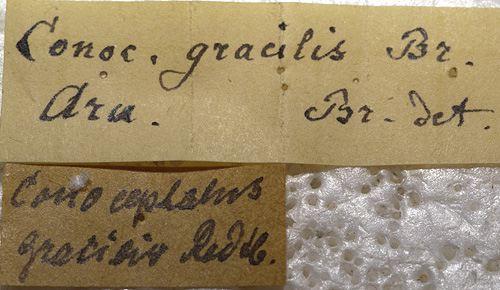 Conoc. gracilis Br.
Aru. Br. det.
Conocephalus
gracilis Redtb.